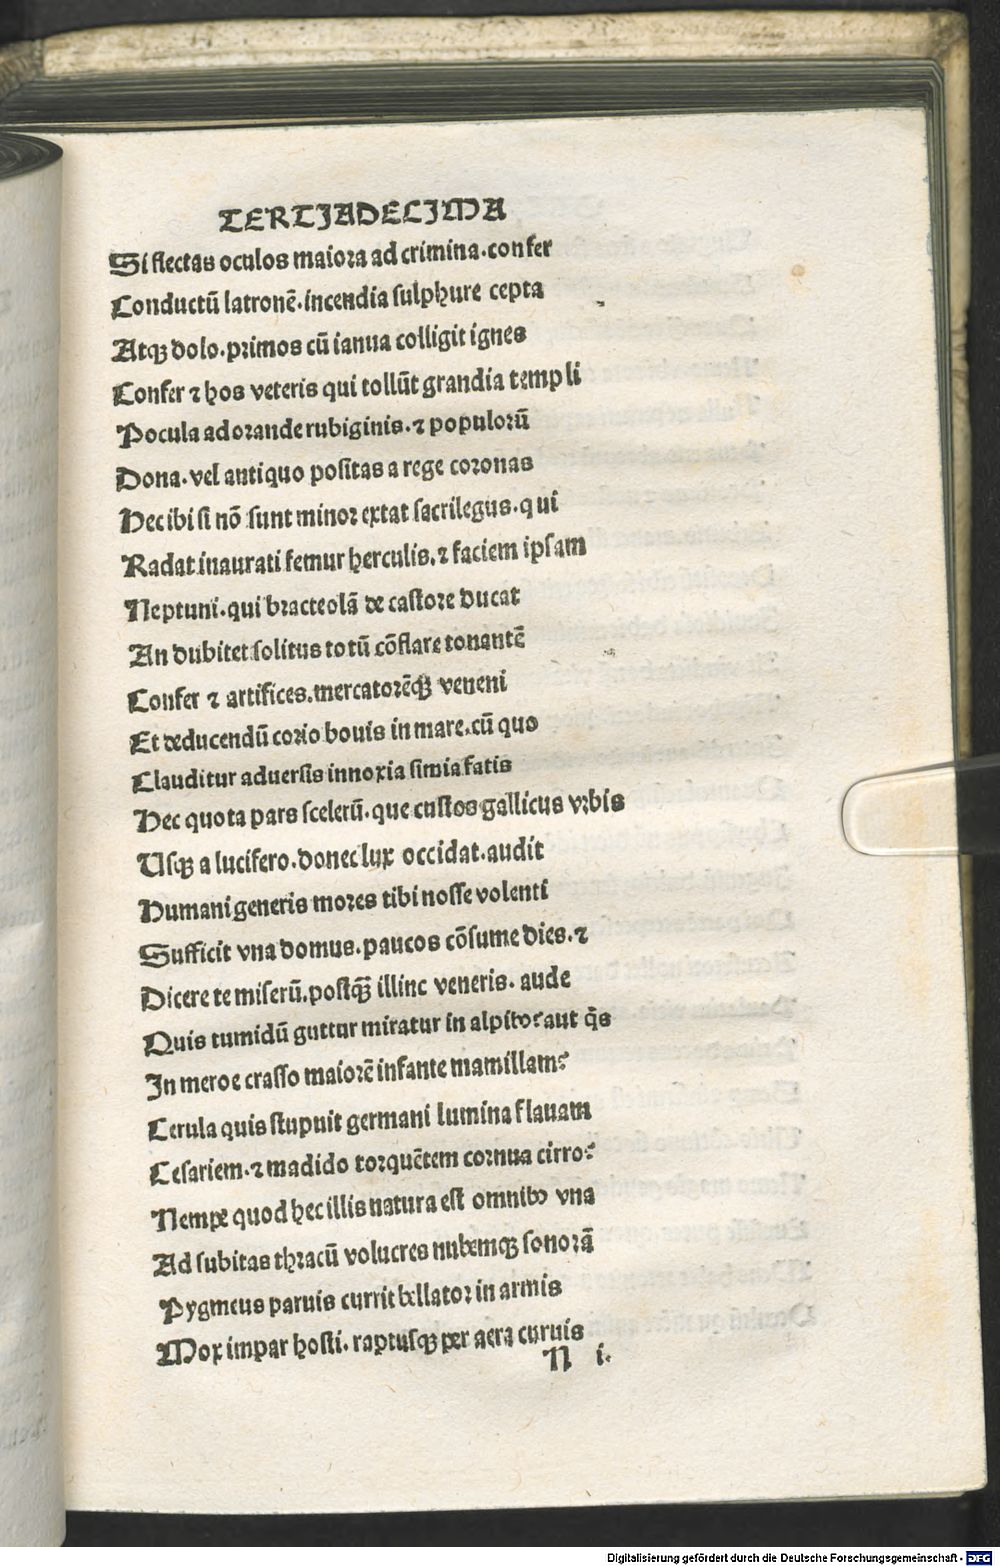 TERTIADECIMA
Si flectas oculos maiora ad crimina. confer
Conductū latronē. incendia sulphure cepta
Atqꝫ dolo. primos cū ianua colligit ignes
Confer ⁊ hos veteris qui tollūt grandia templi
Pocula adorande rubiginis. ⁊ populorū
Dona. vel antiquo positas a rege coronas
Hec ibi si nō sunt minor extat sacrilegus. qui
Radat inaurati femur herculis. ⁊ faciem ipsam
Neptuni. qui bracteolā de castore ducat
An dubitet solitus totū cōflare tonantē
Confer ⁊ artifices. mercatorēqꝫ veneni
Et deducendū corio bouis in mare. cū quo
Clauditur aduersis innoxia simia fatis
Hec quota pars scelerū. que custos gallicus vrbis
Usqꝫ a lucifero. donec lux occidat. audit
Humani generis mores tibi nosse volenti
Sufficit vna domus. paucos cōsume dies. ⁊
Dicere te miserū. postqꝫ̄ illinc veneris. aude
Quis tumidū guttur miratur in alpibꝰ? aut q̄s
In meroe crasso maiorē infante mamillam?
Cerula quis stupuit germani lumina flauam
Cesariem. ⁊ madido torquētem cornua cirro?
Nempe quod hec illis natura est omnibꝰ vna
Ad subitas thracū volucres nubemqꝫ sonorā
Pygmeus paruis currit bellator in armis
Mox impar hosti. raptusqꝫ per aera curuis
N i.
Digitalisierung gefördert durch die Deutsche Forschungsgemeinschaft - DFG